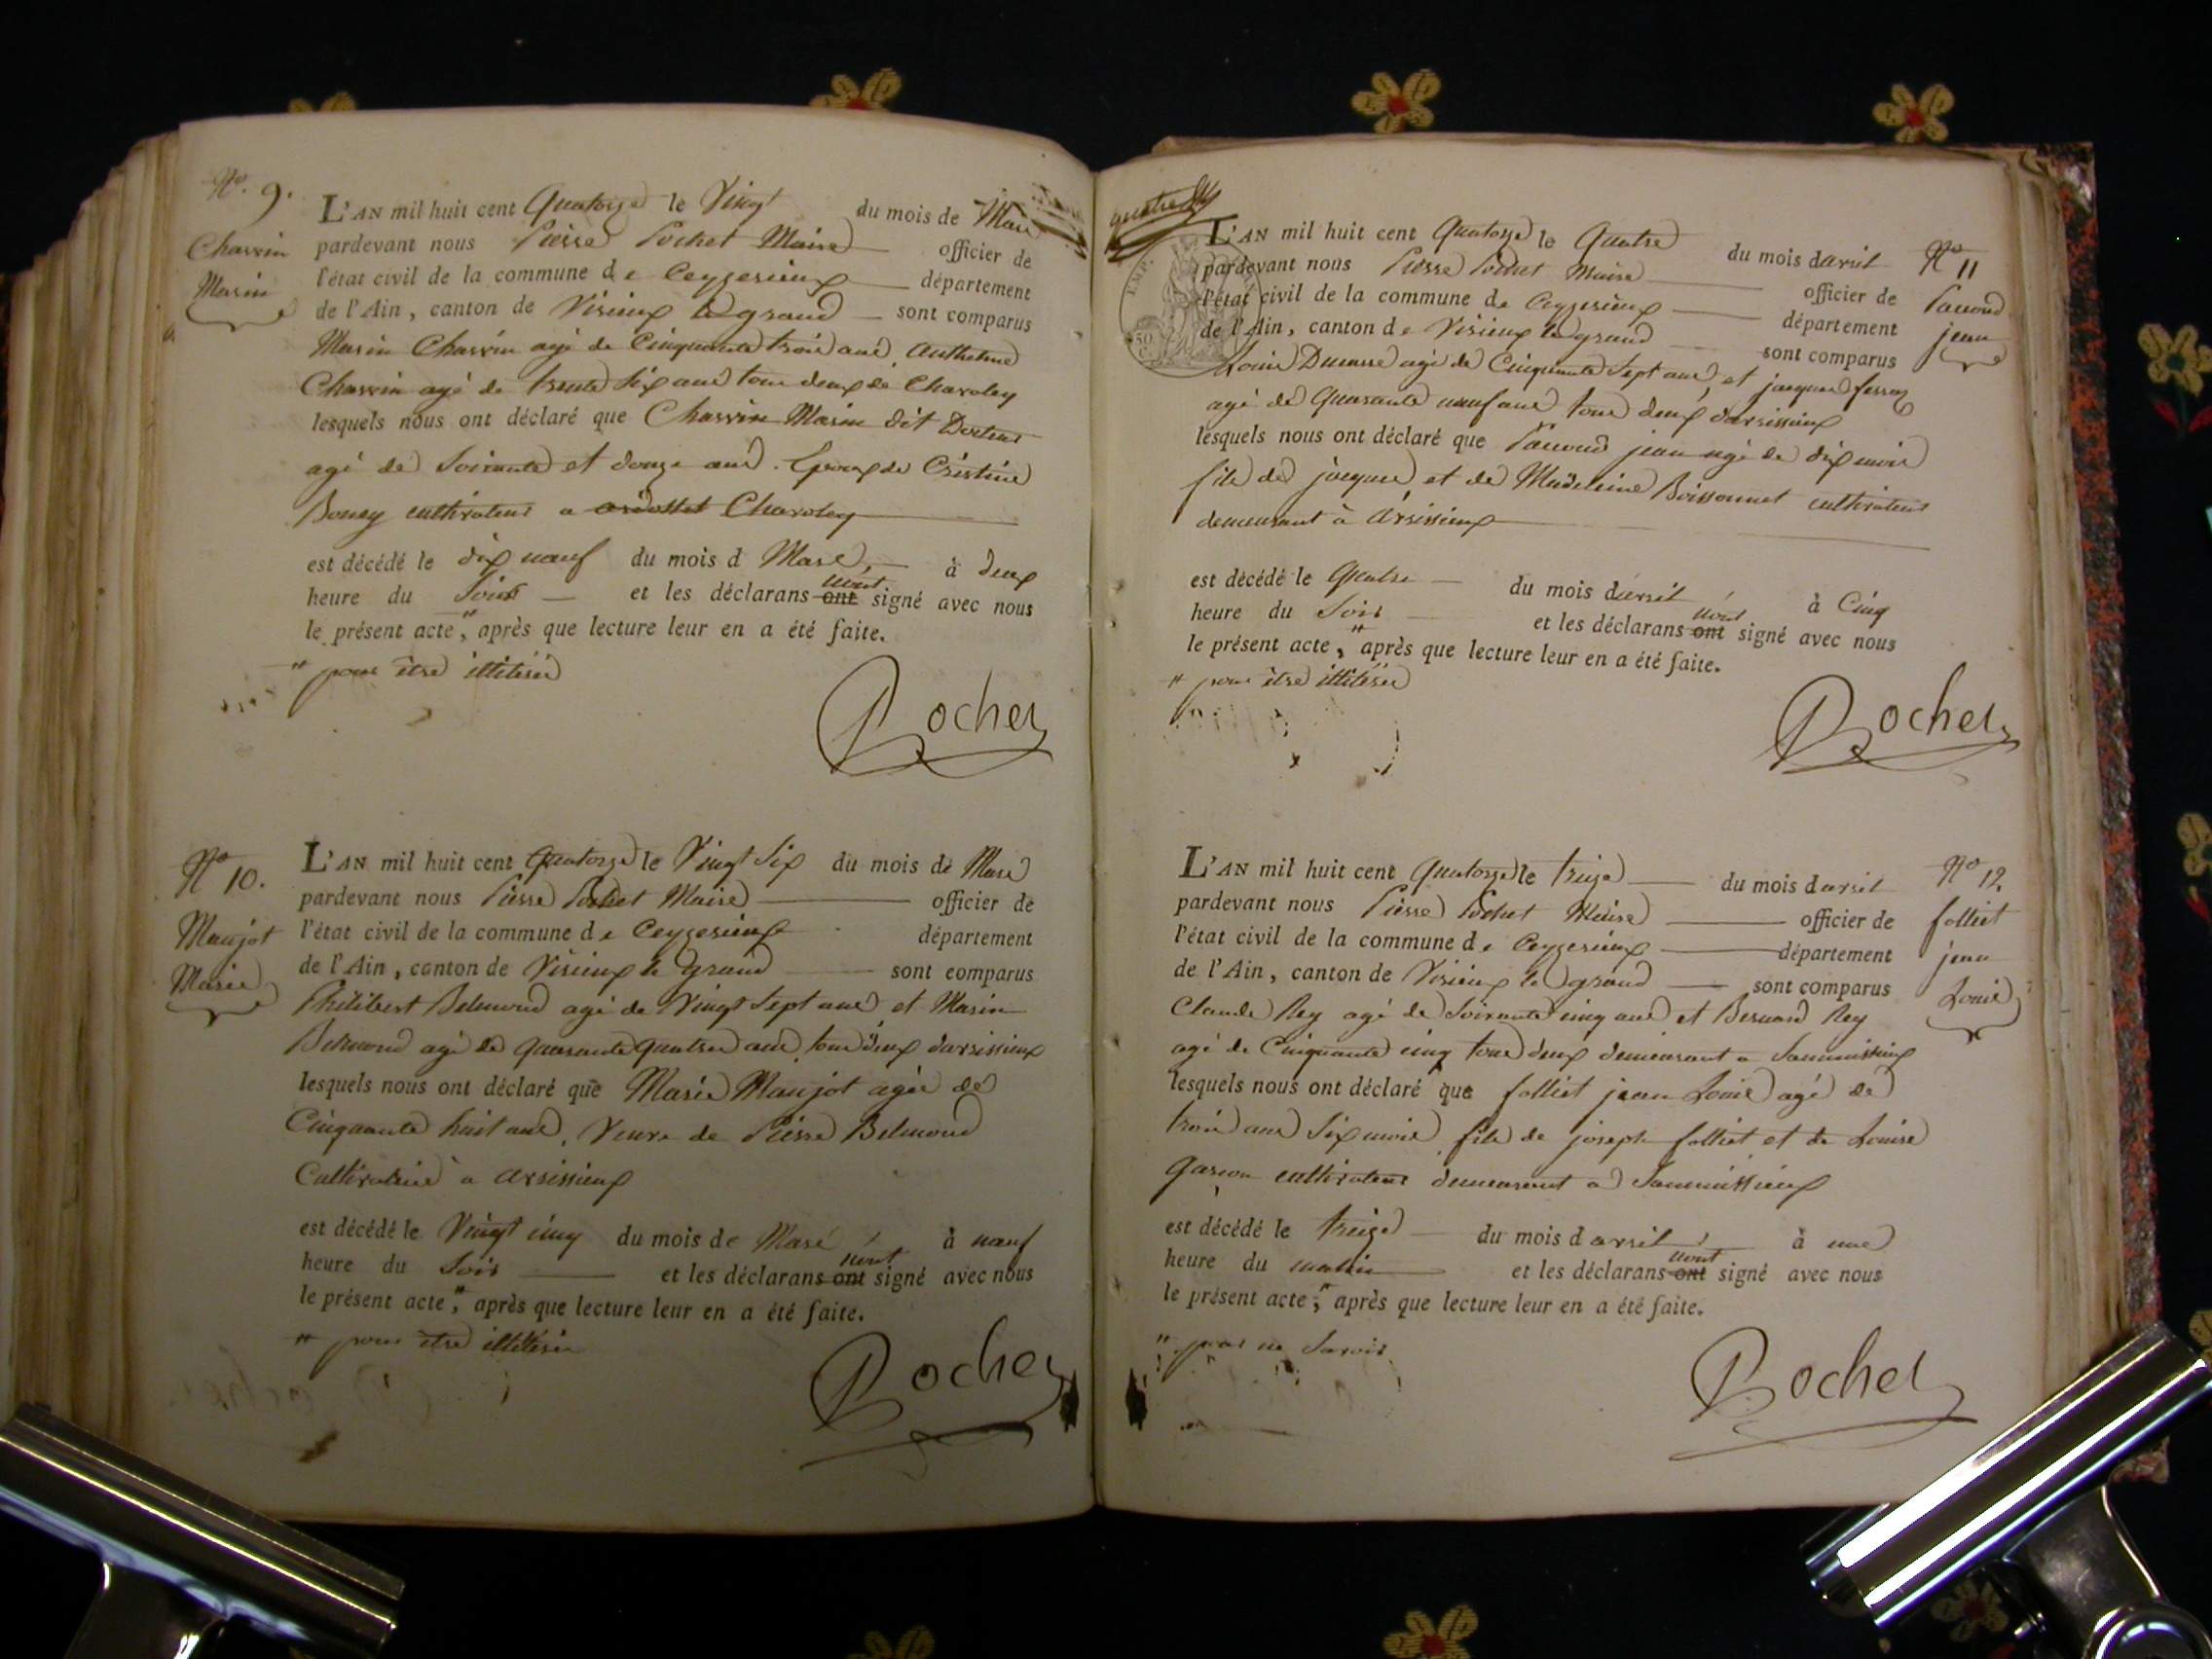 N.° 9.
Charvin
Marin
L'AN mil huit cent Quatorze le Vingt du mois de Mars
pardevant nous Pierre Pochet Maire officier de
l'état civil de la commune de Ceyzerieux département
de l'Ain, canton de Virieux le grand sont comparus
Marin Charvin agé de Cinquante trois ans Anthelme
Charvin agé de trente six ans tous deux de Charoley
lesquels nous ont déclaré que Charvin Marin dit
agé de Soixante et douze ans. Epoux de Cristine
cultivateur a Charoley
est décédé le dix neuf du mois d Mars à deux
heure du Soir et les déclarans ont n'ont signé avec nous
le présent acte ", après que lecture leur en a été faite.
" pour être illitéré
Pochet
N° 10.
Maujot
Marie
L'AN mil huit cent Quatorze le Vingt Six du mois de Mars
pardevant nous Pierre Pochet Maire officier de
l'état civil de la commune de Ceyzerieux département
de l'Ain, canton de Virieux le grand sont comparus
Philibert Belmond agé de Vingt Sept ans et Marin
Belmond agé de quarante quatre ans, tous deux darvissieux
lesquels nous ont déclaré que Marie Maujot agée de
Cinquante huit ans, Veuve de Pierre Belmond
Cultivatrice a arvissieux
est décédé le Vingt cinq du mois de Mars à neuf
heure du Soir et les déclarans ont n'ont signé avec nous
le présent acte ", après que lecture leur en a été faite.
" pour être illitéré
Pochet
quatre
EMP.
50 C.
N° 11
jean
L'AN mil huit cent Quatorze le Quatre du mois davril
pardevant nous Pierre Pochet Maire officier de
l'état civil de la commune de Ceyzerieux département
de l'Ain, canton de Virieux le grand sont comparus
Louis agé de Cinquante Sept ans, et jacques
agé de Quarante neuf ans tous deux darvissieux
lesquels nous ont déclaré que jean agé de dix mois
fils de jacques et de Madeleine Boissonnet cultivateur
demeurant à Arvissieux
est décédé le Quatre du mois davril à Cinq
heure du Soir et les déclarans ont n'ont signé avec nous
le présent acte ", après que lecture leur en a été faite.
" pour être illitéré
Pochet
N° 12.
folliet
jean
Louis
L'AN mil huit cent Quatorze le treize du mois davril
pardevant nous Pierre Pochet Maire officier de
l'état civil de la commune de Ceyzerieux département
de l'Ain, canton de Virieux le grand sont comparus
Claude Rey agé de Soixante cinq ans et Bernard Rey
agé de Cinquante cinq tous deux demeurant a
lesquels nous ont déclaré que folliet jean Louis agé de
trois ans Six mois fils de joseph folliet et de Louise
cultivateur demeurant a
est décédé le treize du mois davril à une
heure du matin et les déclarans ont n'ont signé avec nous
le présent acte ", après que lecture leur en a été faite.
" pour ne Savoir
Pochet